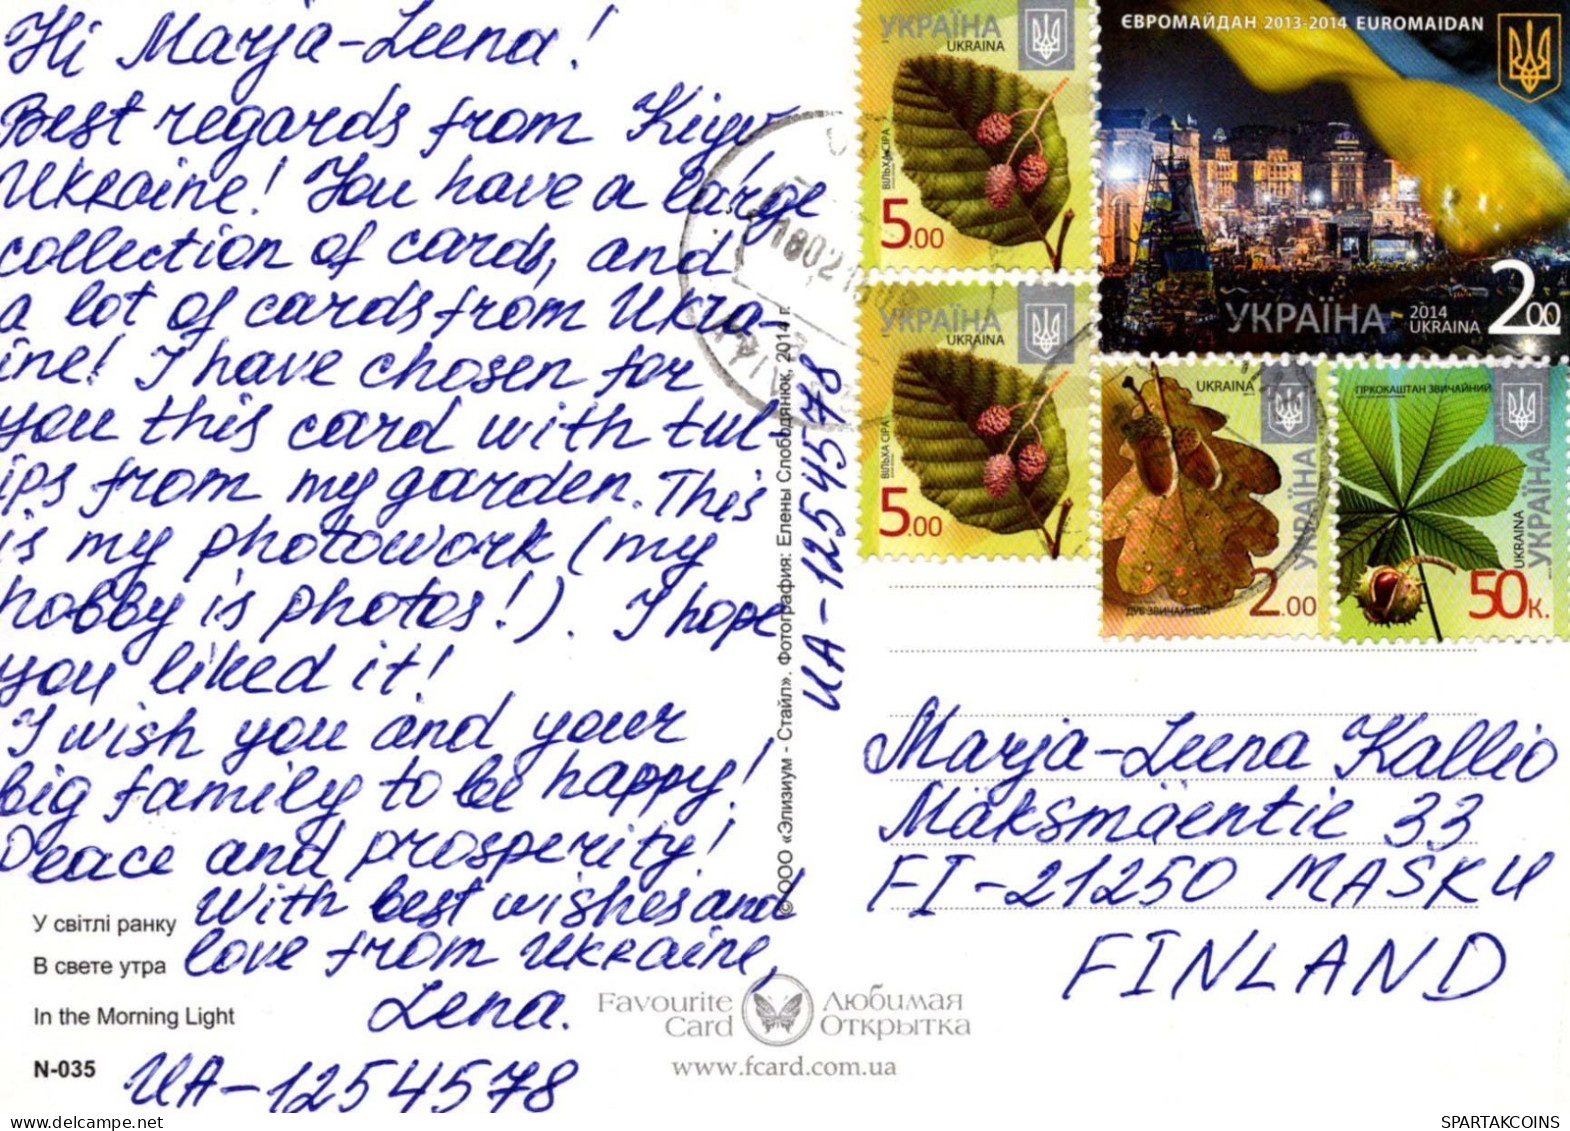 Hi Marja-Leena!
Best regards from Kiyv
Ukraine! You have a large
collection of cards, and
a lot of cards from Ukra-
ine! I have chosen for
you this card with tul-
ips from my garden. This
is my photowork (my
hobby is photos!). I hope
you liked it!
I wish you and your
big family to be happy!
Peace and prosperity!
With best wishes and
love from Ukraine,
Lena.
UA-1254578
У світлі ранку
В свете утра
In the Morning Light
N-035
© ООО «Элизиум - Стайл». Фотография: Елены Слободянюк, 2014 г.
UA-1254578
Favourite Card
Любимая Открытка
www.fcard.com.ua
УКРАЇНА
UKRAINA
ВІЛЬХА СІРА
5.00
ЄВРОМАЙДАН 2013-2014 EUROMAIDAN
УКРАЇНА
2014
UKRAINA
2.00
УКРАЇНА
UKRAINA
ВІЛЬХА СІРА
5.00
UKRAINA
УКРАЇНА
ДУБ ЗВИЧАЙНИЙ
2.00
ГІРКОКАШТАН ЗВИЧАЙНИЙ
УКРАЇНА
UKRAINA
50к.
Marja-Leena Kallio
Mäksmäentie 33
FI-21250 MASKU
FINLAND
www.delcampe.net
SPARTAKCOINS